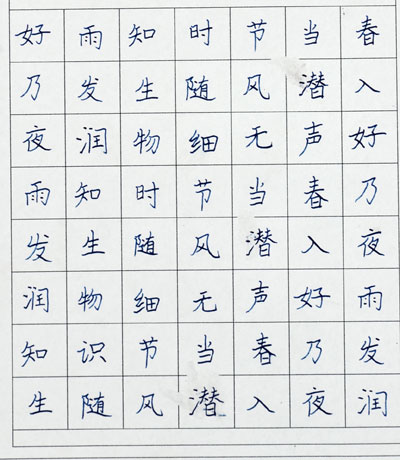 好雨知时节当春
乃发生随风潜入
夜润物细无声好
雨知时节当春乃
发生随风潜入夜
润物细无声好雨
知识节当春乃发
生随风潜入夜润